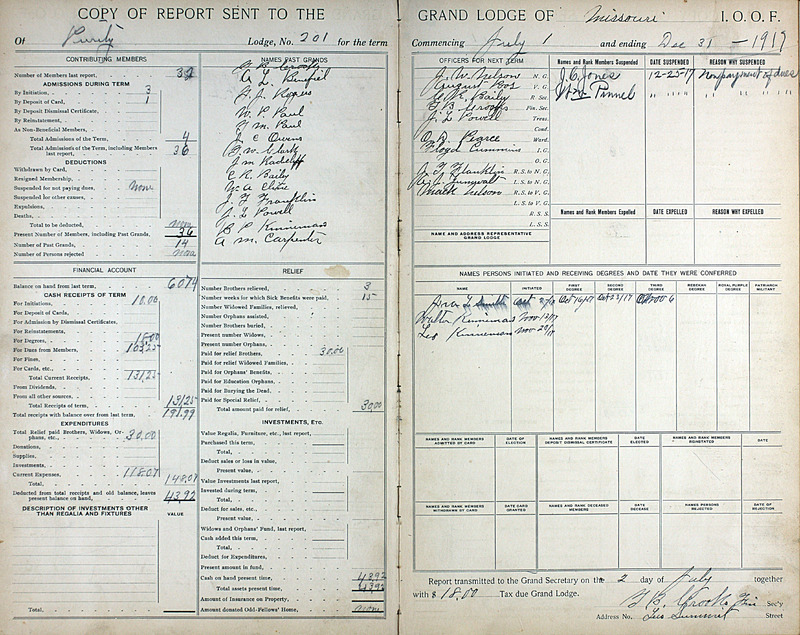 COPY OF REPORT SENT TO THE
Of Purity Lodge, No. 201 for the term
CONTRIBUTING MEMBERS
Number of Members last report, 32
ADMISSIONS DURING TERM
By Initiation, 3
By Deposit of Card, 1
By Deposit Dismissal Certificate,
By Reinstatement,
As Non-Beneficial Members,
Total Admissions of the Term, 4
Total Admissions of the Term, including Members last report, 36
DEDUCTIONS
Withdrawn by Card,
Resigned Membership,
Suspended for not paying dues, None
Suspended for other causes,
Expulsions,
Deaths,
Total to be deducted, None
Present Number of Members, including Past Grands, 36
Number of Past Grands, 14
Number of Persons rejected, None
NAMES PAST GRANDS
A L Benefiel
W. P. Paul
J. M. Paul
J. C. Owens
B. W. Clark
C R Baily
J. F. Franklin
J. L. Powell
B P Kinneman
A M. Carpenter
FINANCIAL ACCOUNT
Balance on hand from last term, 60 74
CASH RECEIPTS OF TERM
For Initiations, 10.00
For Deposit of Cards,
For Admission by Dismissal Certificates,
For Reinstatements,
For Degrees, 18.00
For Dues from Members, 103.25
For Fines,
For Cards, etc.,
Total Current Receipts, 131 25
From Dividends,
From all other sources,
Total Receipts of term, 131 25
Total receipts with balance over from last term, 191.99
EXPENDITURES
Total Relief paid Brothers, Widows, Orphans, etc., 30.00
Donations,
Supplies,
Investments,
Current Expenses, 118.07
Total, 148.07
Deducted from total receipts and old balance, leaves present balance on hand, 43.92
DESCRIPTION OF INVESTMENTS OTHER THAN REGALIA AND FIXTURES
VALUE
Total,
RELIEF
Number Brothers relieved, 3
Number weeks for which Sick Benefits were paid, 15
Number Widowed Families, relieved,
Number Orphans assisted,
Number Brothers buried,
Present number Widows,
Present number Orphans,
Paid for relief Brothers, 30.00
Paid for relief Widowed Families,
Paid for Orphans' Benefits,
Paid for Education Orphans,
Paid for Burying the Dead,
Paid for Special Relief,
Total amount paid for relief, 30.00
INVESTMENTS, ETC.
Value Regalia, Furniture, etc., last report,
Purchased this term,
Total,
Deduct sales or loss in value,
Present value,
Value Investments last report,
Invested during term,
Total,
Deduct for sales, etc.,
Present value,
Widows and Orphans' Fund, last report,
Cash added this term,
Total,
Deduct for Expenditures,
Present amount in fund,
Cash on hand present time, 43.92
Total assets present time, 43.92
Amount of Insurance on Property,
Amount donated Odd-Fellows' Home, None
GRAND LODGE OF Missouri I. O. O. F.
Commencing July 1 and ending Dec 31 - 1917
OFFICERS FOR NEXT TERM
J. W. Nelson N. G.
August Bos V. G.
C R. Baily R. Sec.
Y B. Crooks Fin. Sec.
J. L Powell Treas.
Cond.
O. D. Pearce Ward.
Floyd Cummins I. G.
O. G.
J. F Franklin R. S. to N. G.
L. S. to N. G.
Nelson R. S. to V. G.
L. S. to V. G.
R. S. S.
L. S. S.
NAME AND ADDRESS REPRESENTATIVE GRAND LODGE
Names and Rank Members Suspended
DATE SUSPENDED
REASON WHY SUSPENDED
J. C. Jones 12-25-17 Nonpayment of dues
Wm. Pinnel " " " " " "
Names and Rank Members Expelled
DATE EXPELLED
REASON WHY EXPELLED
NAMES PERSONS INITIATED AND RECEIVING DEGREES AND DATE THEY WERE CONFERRED
NAME
INITIATED
FIRST DEGREE
SECOND DEGREE
THIRD DEGREE
REBEKAH DEGREE
ROYAL PURPLE DEGREE
PATRIARCH MILITARY
Smith Oct Oct 16/17 Oct 23/17 Nov 6
Walter Kinneman Nov 13/17
Les Kinneman Nov 20/17
NAMES AND RANK MEMBERS ADMITTED BY CARD
DATE OF ELECTION
NAMES AND RANK MEMBERS DEPOSIT DISMISSAL CERTIFICATE
DATE ELECTED
NAMES AND RANK MEMBERS REINSTATED
DATE
NAMES AND RANK MEMBERS WITHDRAWN BY CARD
DATE CARD GRANTED
NAMES AND RANK DECEASED MEMBERS
DATE DECEASE
NAMES PERSONS REJECTED
DATE OF REJECTION
Report transmitted to the Grand Secretary on the 2 day of July together
with $ 18.00 Tax due Grand Lodge.
Y B. Crooks Fin Sec'y
Address No. Street